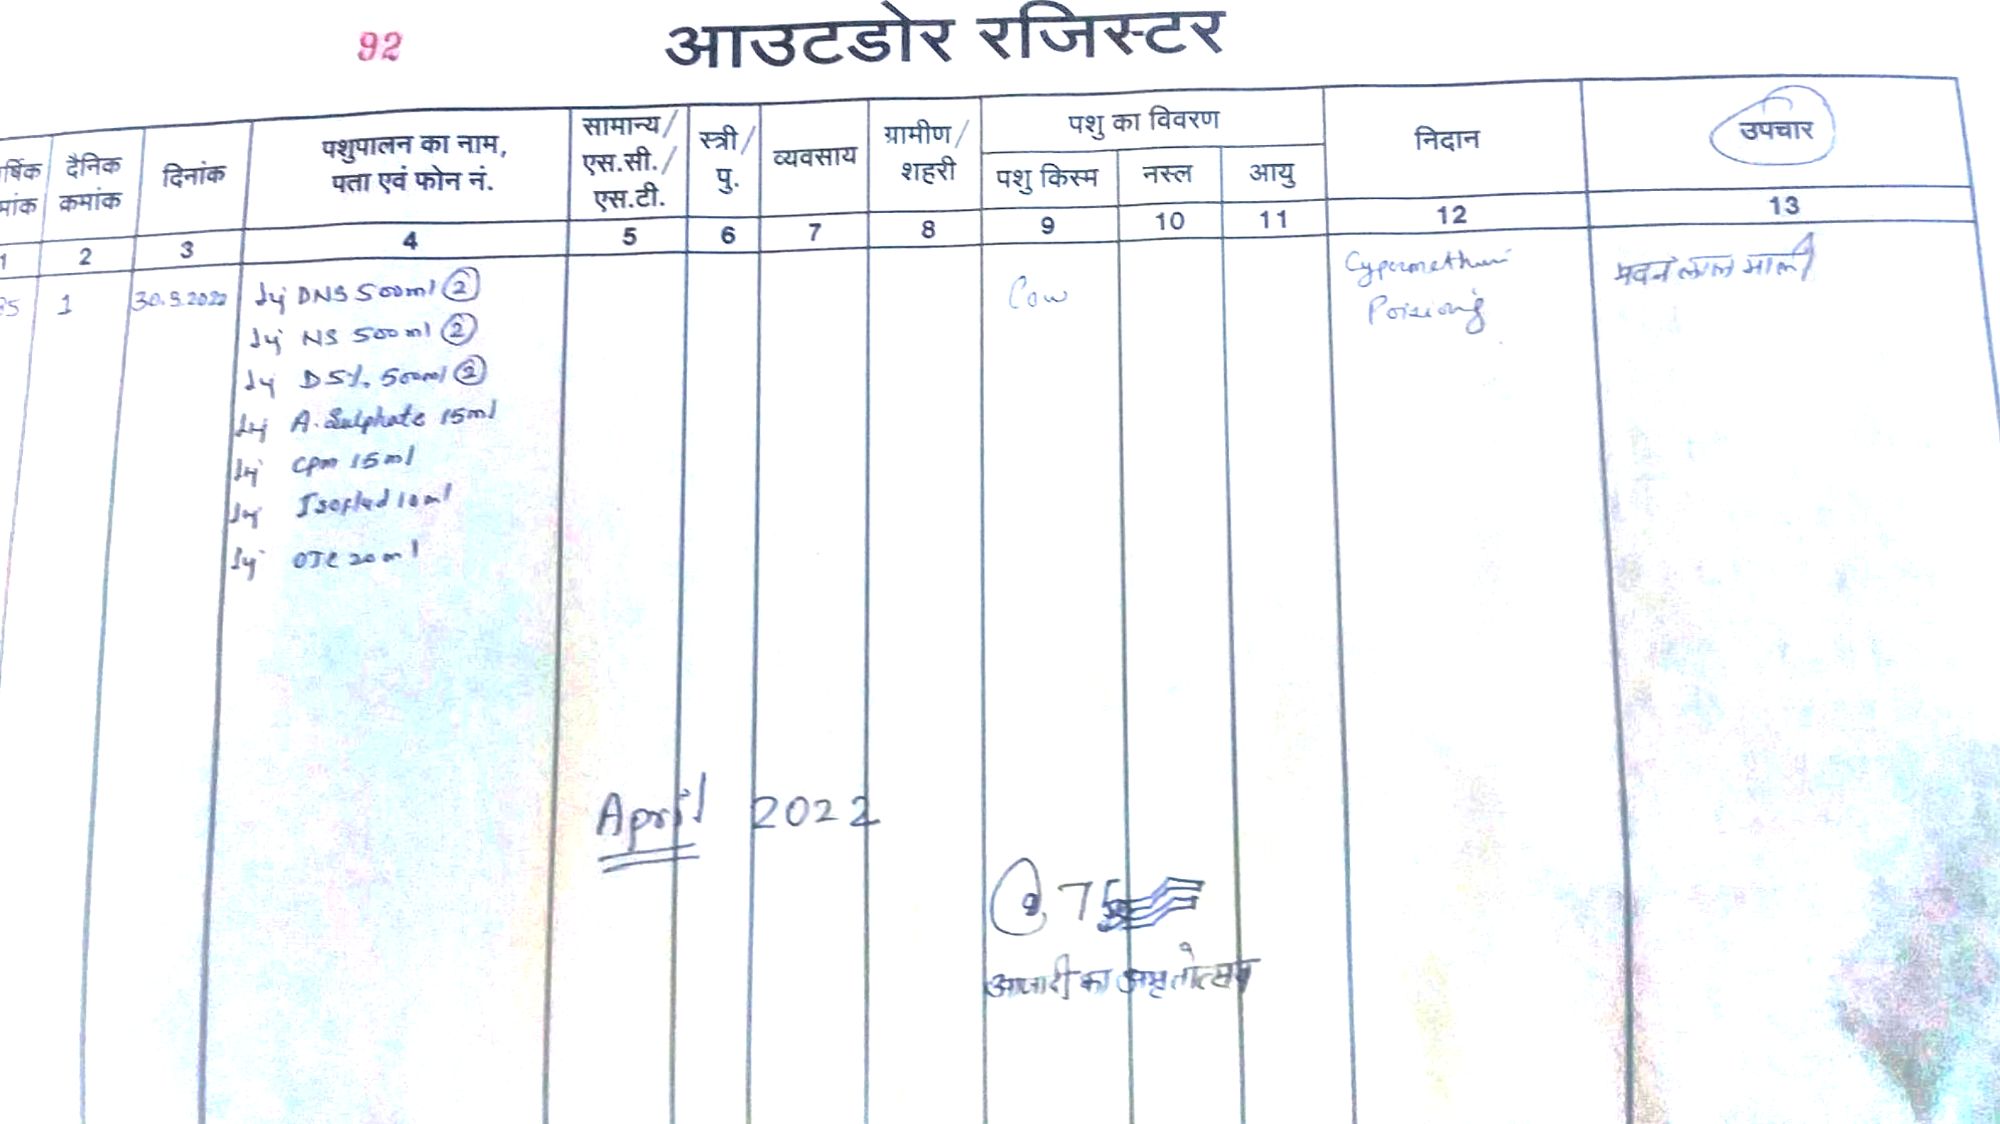 92
आउटडोर रजिस्टर
र्षिक
मांक
दैनिक
कमांक
दिनांक
पशुपालन का नाम,
पता एवं फोन नं.
सामान्य/
एस.सी./
एस.टी.
स्त्री/
पु.
व्यवसाय
ग्रामीण/
शहरी
पशु का विवरण
पशु किस्म
नस्ल
आयु
निदान
उपचार
1 2 3 4 5 6 7 8 9 10 11 12 13
1
Inj DNS 500ml ②
Inj NS 500ml ②
Inj D5%. 500ml ②
Inj A. Sulphate 15ml
Inj Cpm 15ml
Inj Isoflud 10ml
Inj OTC 20ml
Cow
Poisioning
लाल माली
April 2022
75
आजादी का अमृतोत्सव